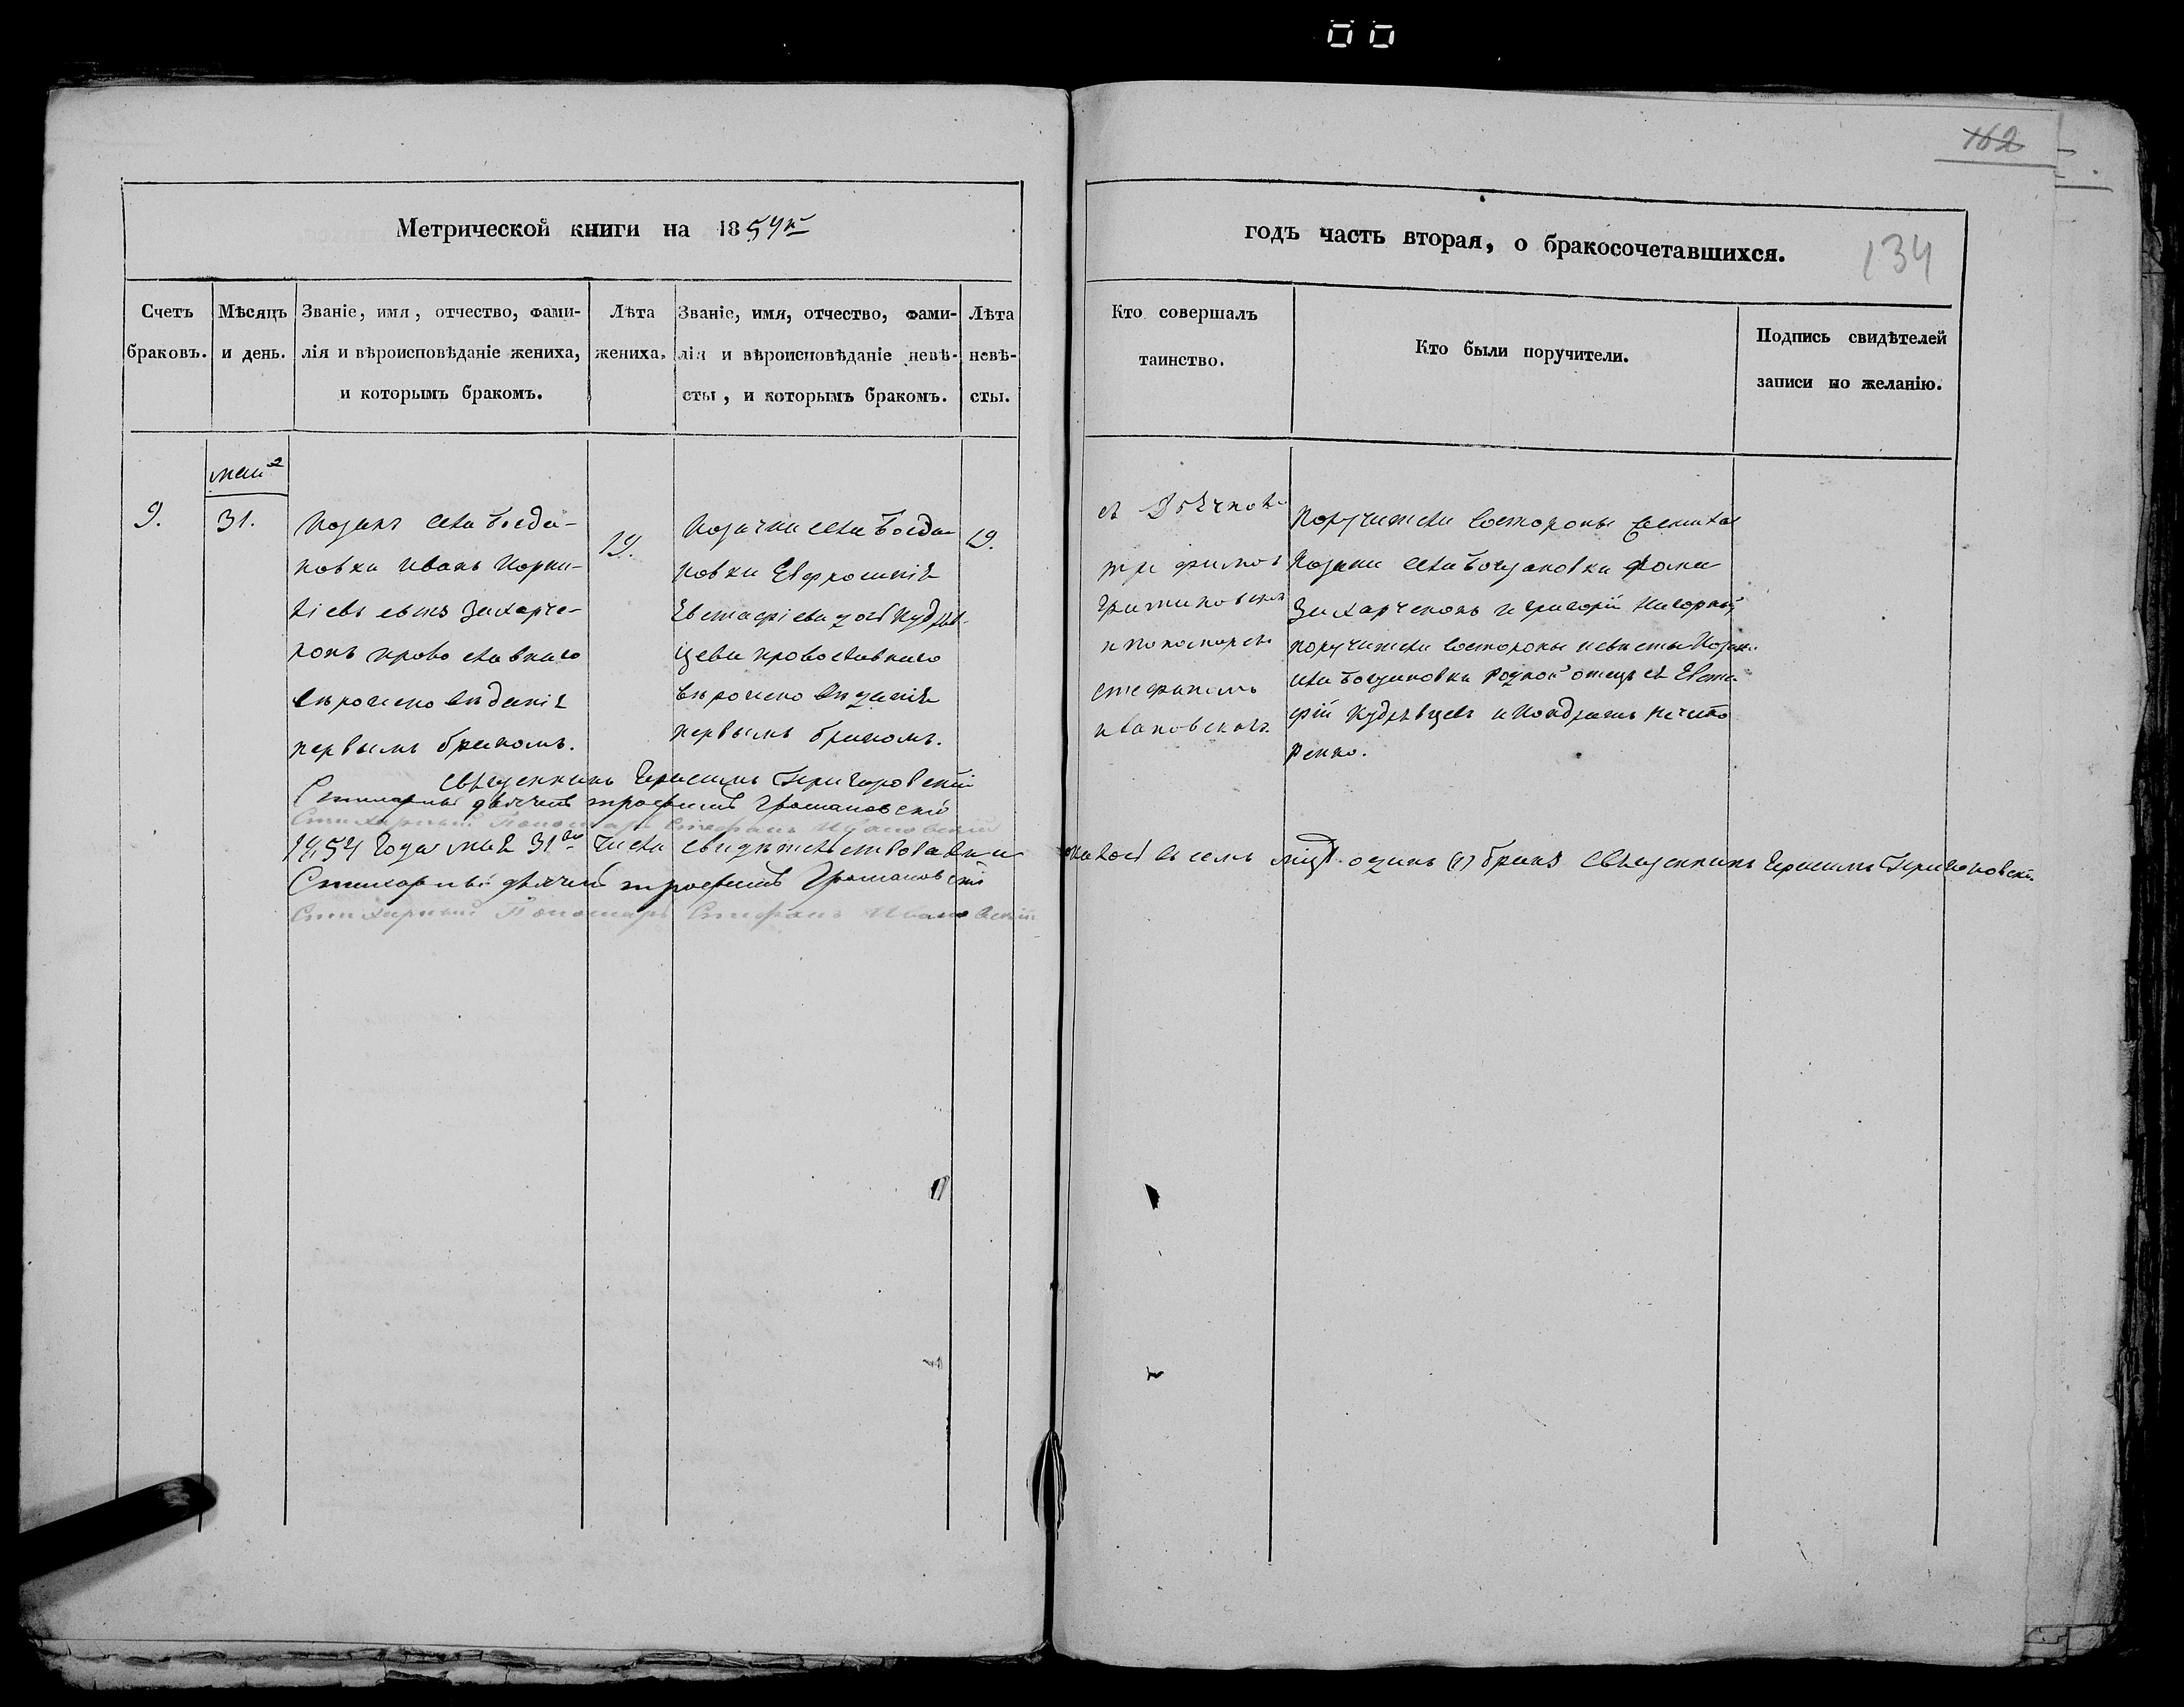 162
Метрической книги на 1854й
годъ часть вторая, о бракосочетавшихся.
134
Счетъ браковъ.
Мѣсяцъ и день.
Званіе, имя, отчество, фами-
лія и вѣроисповѣданіе жениха,
и которымъ бракомъ.
Лѣта
жениха.
Званіе, имя, отчество, фами-
лія и вѣроисповѣданіе невѣ-
сты, и которымъ бракомъ.
Лѣта
невѣ-
сты.
Кто совершалъ
таинство.
Кто были поручители.
Подпись свидѣтелей
записи по желанію.
9.
31.
Козакъ села Богда-
новки Иванъ Корни-
ліевъ сынъ Захарче-
нокъ православнаго
вѣроисповѣданія
первымъ бракомъ.
19.
Козачка села Богда-
новки Евфросинія
Евстафіева дочь Кудряв-
цева православнаго
вѣроисповѣданія
первымъ бракомъ.
19.
съ
трифимов
и пономаремъ
стефаномъ
ивановскимъ
Поручители состороны жениха
Козаки села Богдановки Фома
Захарченокъ и григорій
поручители состороны невѣсты Козаки
села Богдановки родной отецъ ея Евста
фій Кудрявцевъ и Кондратъ Нечипо
ренко.
Священникъ Герасимъ
Стихарный дьячекъ трофимъ
Стихарный Пономарь Стефанъ Ивановскій
1854 года мая 31го числа свидѣтельствовали
оказалось всемъ мцѣ. одинъ (1) бракъ Священникъ Герасимъ
Стихарный дьячекъ трофимъ
Стихарный Пономарь Стефанъ Ивановскій